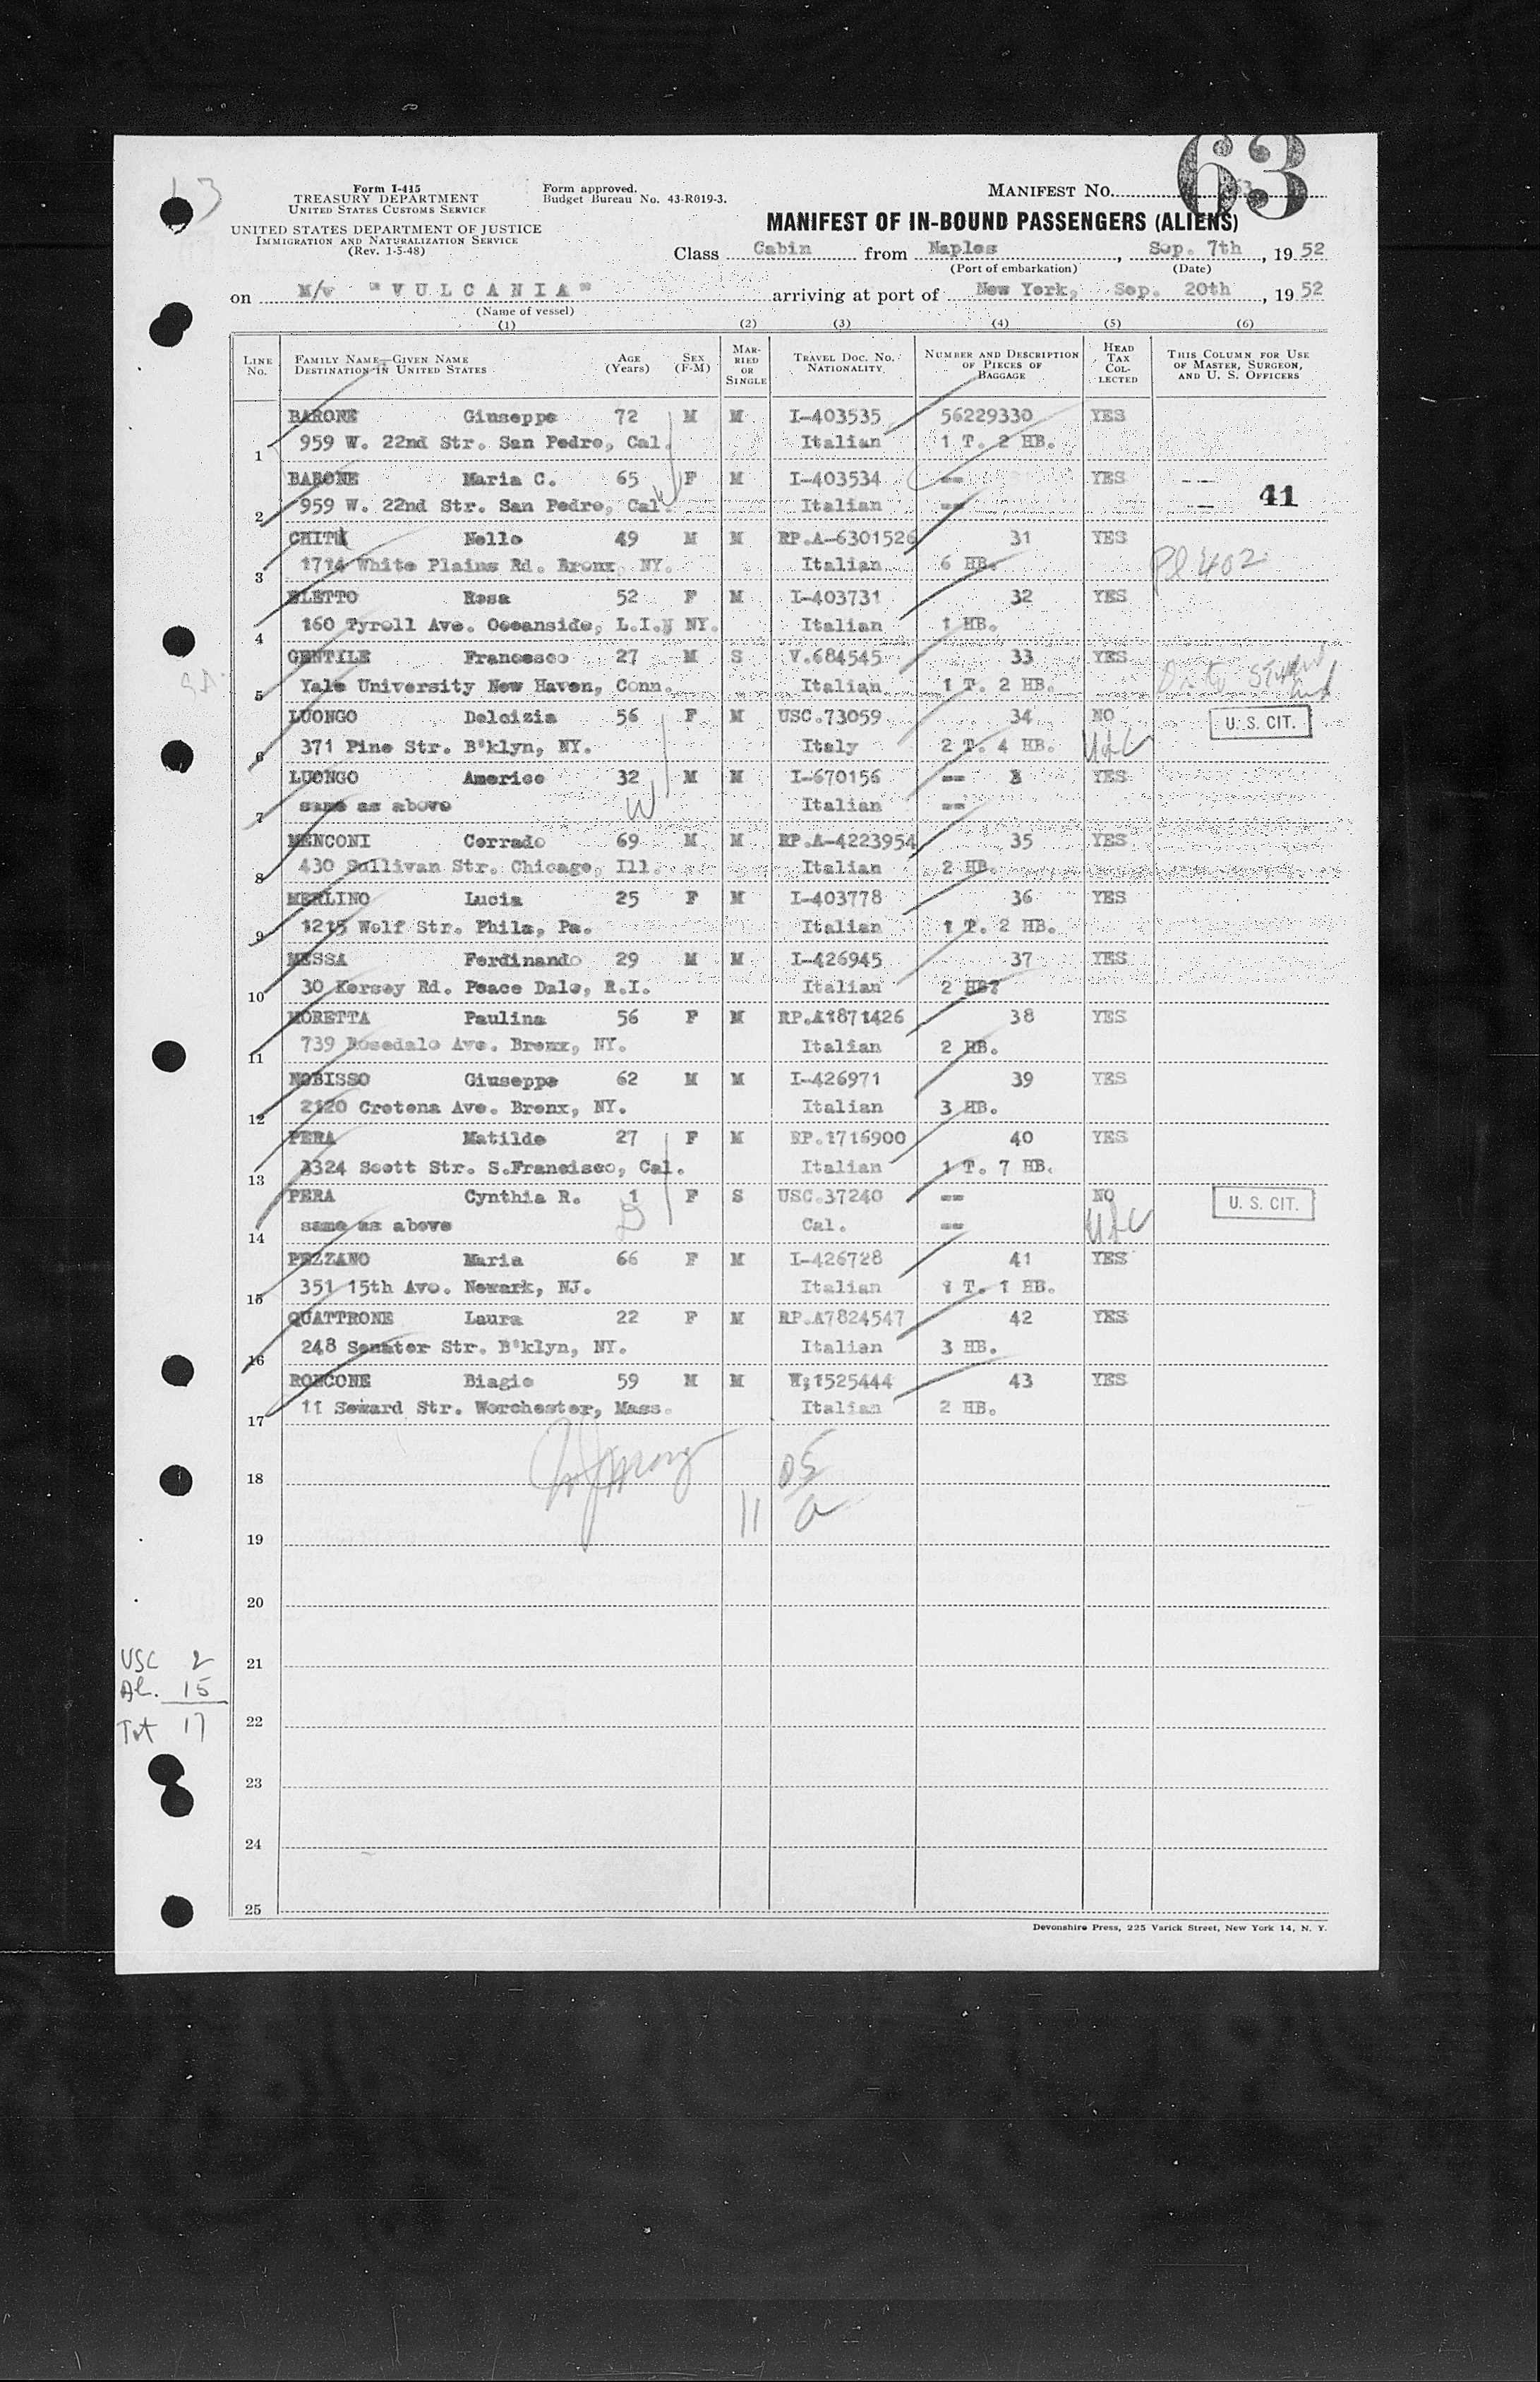 63
Form I-415
TREASURY DEPARTMENT
UNITED STATES CUSTOMS SERVICE
UNITED STATES DEPARTMENT OF JUSTICE
IMMIGRATION AND NATURALIZATION SERVICE
(Rev. 1-5-48)
Form approved.
Budget Bureau No. 43-R019-3.
MANIFEST NO.
MANIFEST OF IN-BOUND PASSENGERS (ALIENS)
Class Cabin from Naples, Sep. 7th, 1952
(Port of embarkation) (Date)
on M/v "VULCANIA" arriving at port of New York, Sep. 20th, 1952
(Name of vessel)
(1) (2) (3) (4) (5) (6)
LINE NO. FAMILY NAME—GIVEN NAME DESTINATION IN UNITED STATES AGE (Years) SEX (F-M) MARRIED OR SINGLE TRAVEL DOC. NO. NATIONALITY NUMBER AND DESCRIPTION OF PIECES OF BAGGAGE HEAD TAX COLLECTED THIS COLUMN FOR USE OF MASTER, SURGEON, AND U. S. OFFICERS
BARONE Giuseppe 72 M M I-403535 56229330 YES
1 959 W. 22nd Str. San Pedro, Cal. Italian 1 T. 2 HB.
BARONE Maria C. 65 F M I-403534 -- YES
2 959 W. 22nd Str. San Pedro, Cal. Italian -- 41
CHITI Nello 49 M M RP.A-6301526 31 YES
3 1714 White Plains Rd. Bronx, NY. Italian 6 HB.
ELETTO Rosa 52 F M I-403731 32 YES
4 160 Tyroll Ave. Oceanside, L.I. NY. Italian 1 HB.
GENTILE Francesco 27 M S V.684545 33 YES
5 Yale University New Haven, Conn. Italian 1 T. 2 HB.
LUONGO Dolcizia 56 F M USC.73059 34 NO U. S. CIT.
6 371 Pine Str. B'klyn, NY. Italy 2 T. 4 HB.
LUONGO Americo 32 M M I-670156 -- YES
7 same as above Italian --
MENCONI Corrado 69 M M RP.A-4223954 35 YES
8 430 Sullivan Str. Chicago, Ill. Italian 2 HB.
MERLINO Lucia 25 F M I-403778 36 YES
9 1215 Wolf Str. Phila, Pa. Italian 1 T. 2 HB.
MESSA Ferdinando 29 M M I-426945 37 YES
10 30 Kersey Rd. Peace Dale, R.I. Italian 2 HB?
MORETTA Paulina 56 F M RP.A1871426 38 YES
11 739 Rosedale Ave. Bronx, NY. Italian 2 HB.
NOBISSO Giuseppe 62 M M I-426971 39 YES
12 2120 Crotona Ave. Bronx, NY. Italian 3 HB.
PERA Matilde 27 F M RP.1716900 40 YES
13 2324 Scott Str. S.Francisco, Cal. Italian 1 T. 7 HB.
PERA Cynthia R. 1 F S USC.37240 -- NO U. S. CIT.
14 same as above Cal. --
PEZZANO Maria 66 F M I-426728 41 YES
15 351 15th Ave. Newark, NJ. Italian 1 T. 1 HB.
QUATTRONE Laura 22 F M RP.A7824547 42 YES
16 248 Senator Str. B'klyn, NY. Italian 3 HB.
RONCONE Biagio 59 M M W;1525444 43 YES
17 11 Seward Str. Worchester, Mass. Italian 2 HB.
18
19
20
USC 2
21
Al. 15
22
Tot 17
23
24
25
Devonshire Press, 225 Varick Street, New York 14, N. Y.